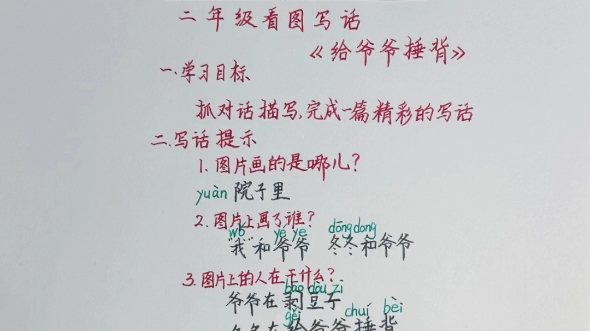 二年级看图写话
《给爷爷捶背》
一.学习目标
抓对话描写,完成一篇精彩的写话
二.写话提示
1.图片画的是哪儿?
yuàn 院子里
2.图片上画了谁?
wǒ yé ye dōng dong
"我"和爷爷 冬冬和爷爷
3.图片上的人在干什么?
bāo dòu zi
爷爷在剥豆子
gěi chuí bèi
冬冬在给爷爷捶背